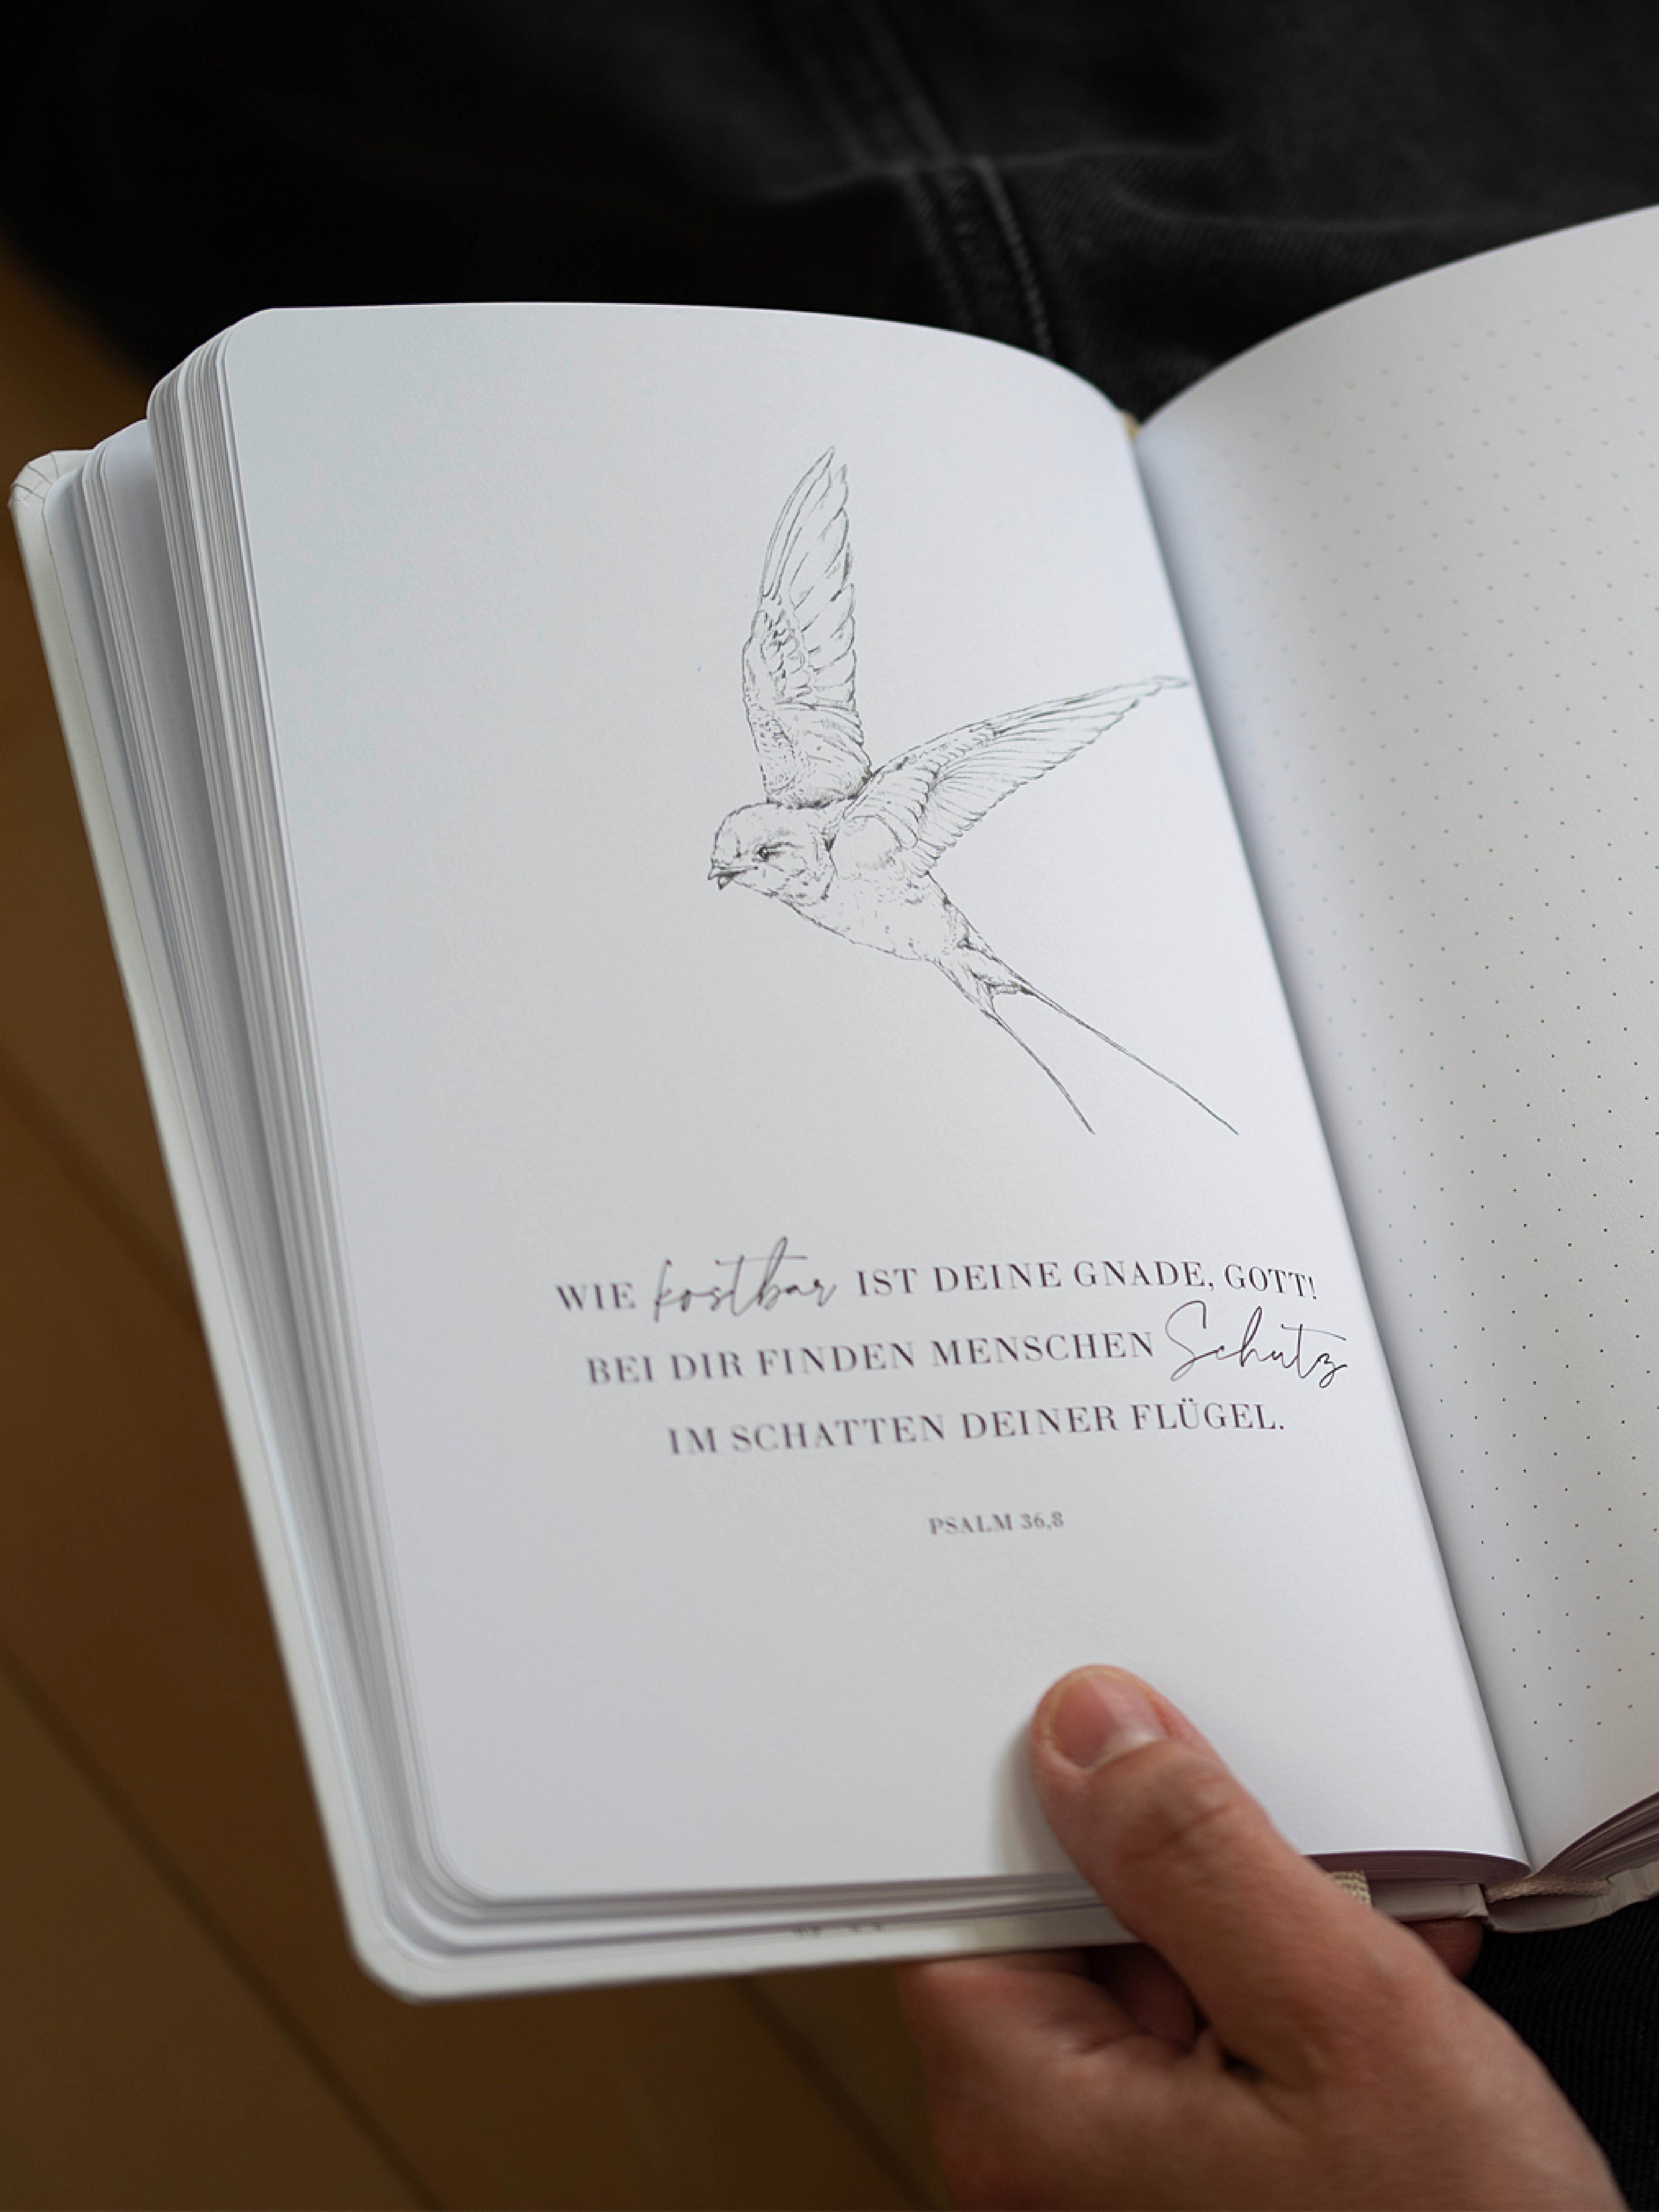 WIE kostbar IST DEINE GNADE, GOTT!
BEI DIR FINDEN MENSCHEN Schutz
IM SCHATTEN DEINER FLÜGEL.
PSALM 36,8